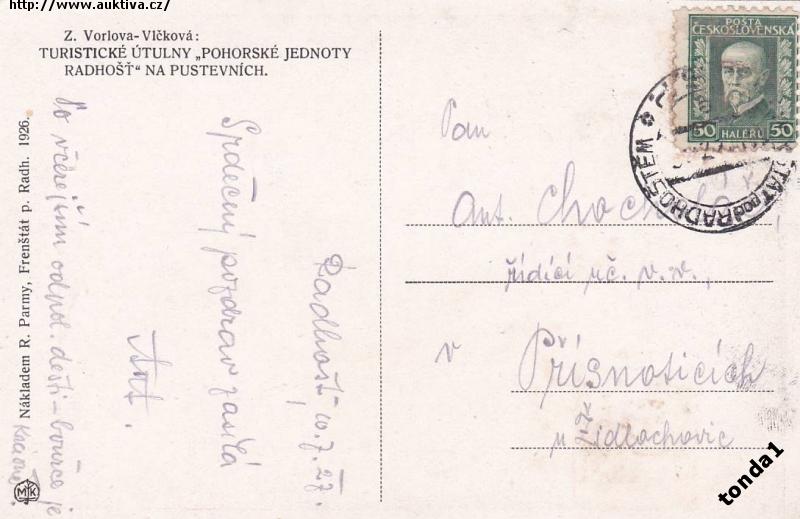 http://www.auktiva.cz/
Z. Vorlova-Vlčková:
TURISTICKÉ ÚTULNY „POHORSKÉ JEDNOTY
RADHOŠŤ“ NA PUSTEVNÍCH.
POŠTA
ČESKOSLOVENSKÁ
50 HALÉŘŮ 50
ŠTÁT pod RADHOŠTĚM
Pan
Ant.
řídící uč. v. v.,
v Přísnoticích
u Židlochovic
Radhošť 10. 7. 27.
Srdečný pozdrav zasílá
Ant.
Po včerejším odpol. dešti – bouřce je
Nákladem R. Parmy, Frenštát p. Radh. 1926.
MK
tonda1